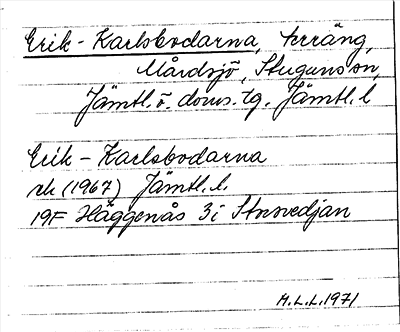 Erik-Karlsbodarna, terräng,
Mårdsjö, Stuguns sn,
Jämtl. ö. doms. tg. Jämtl. l
Erik-Karlsbodarna
rk (1967) Jämtl. l.
19F Häggenås 3i Storvedjan
M.L.L. 1971